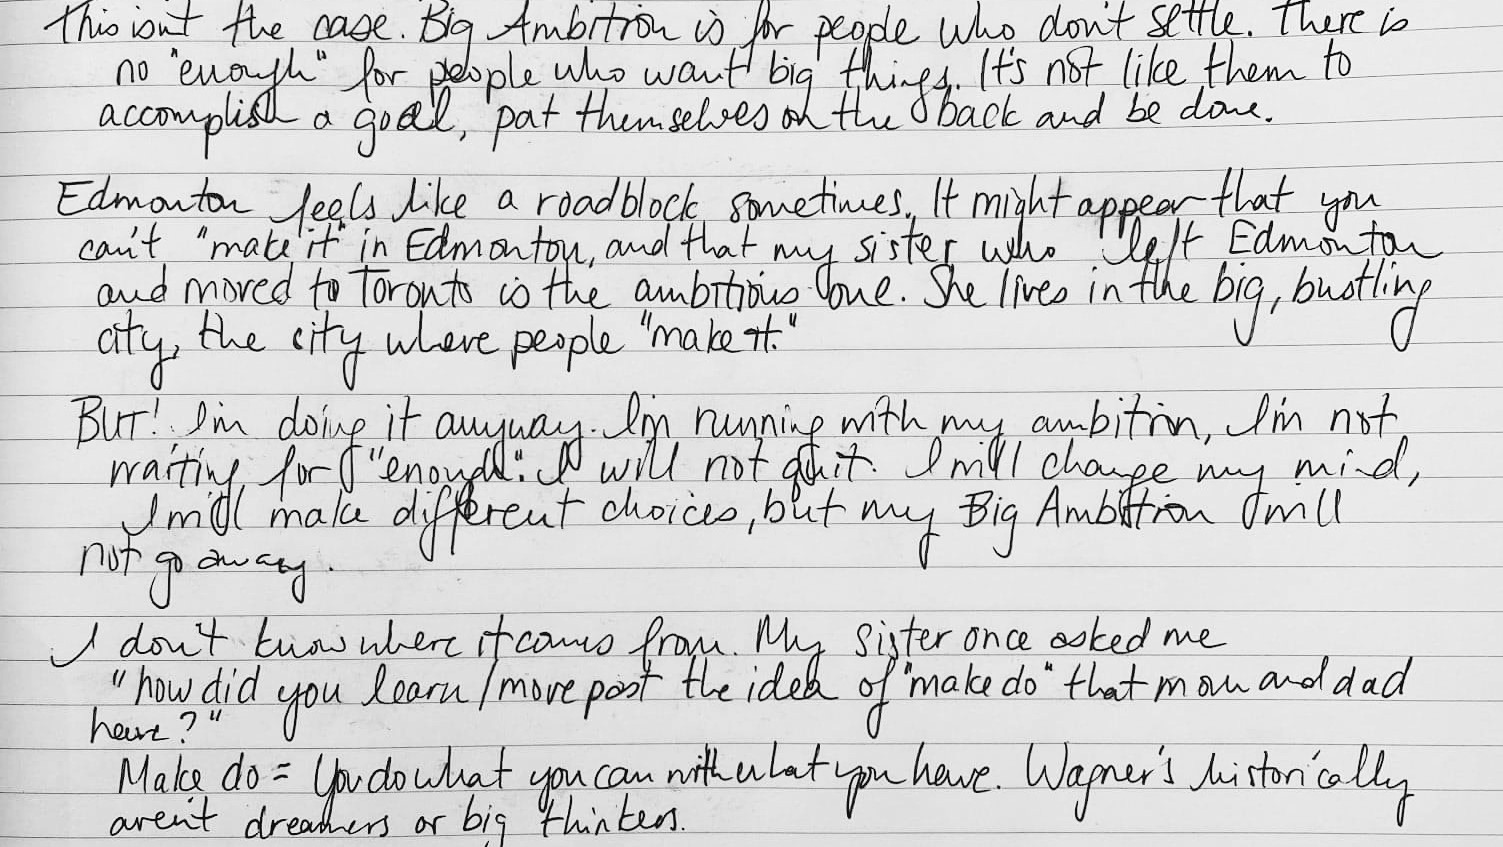 This isn't the case. Big Ambition is for people who don't settle. There is
no "enough" for people who want big things. It's not like them to
accomplish a goal, pat themselves on the back and be done.
Edmonton feels like a roadblock sometimes. It might appear that you
can't "make it" in Edmonton, and that my sister who left Edmonton
and moved to Toronto is the ambitious one. She lives in the big, bustling
city, the city where people "make it."
BUT! I'm doing it anyway. I'm running with my ambition, I'm not
waiting for "enough". I will not quit. I will change my mind,
I will make different choices, but my Big Ambition will
not go away.
I don't know where it comes from. My sister once asked me
"how did you learn/move past the idea of "make do" that mom and dad
have?"
Make do = You do what you can with what you have. Wagner's historically
aren't dreamers or big thinkers.